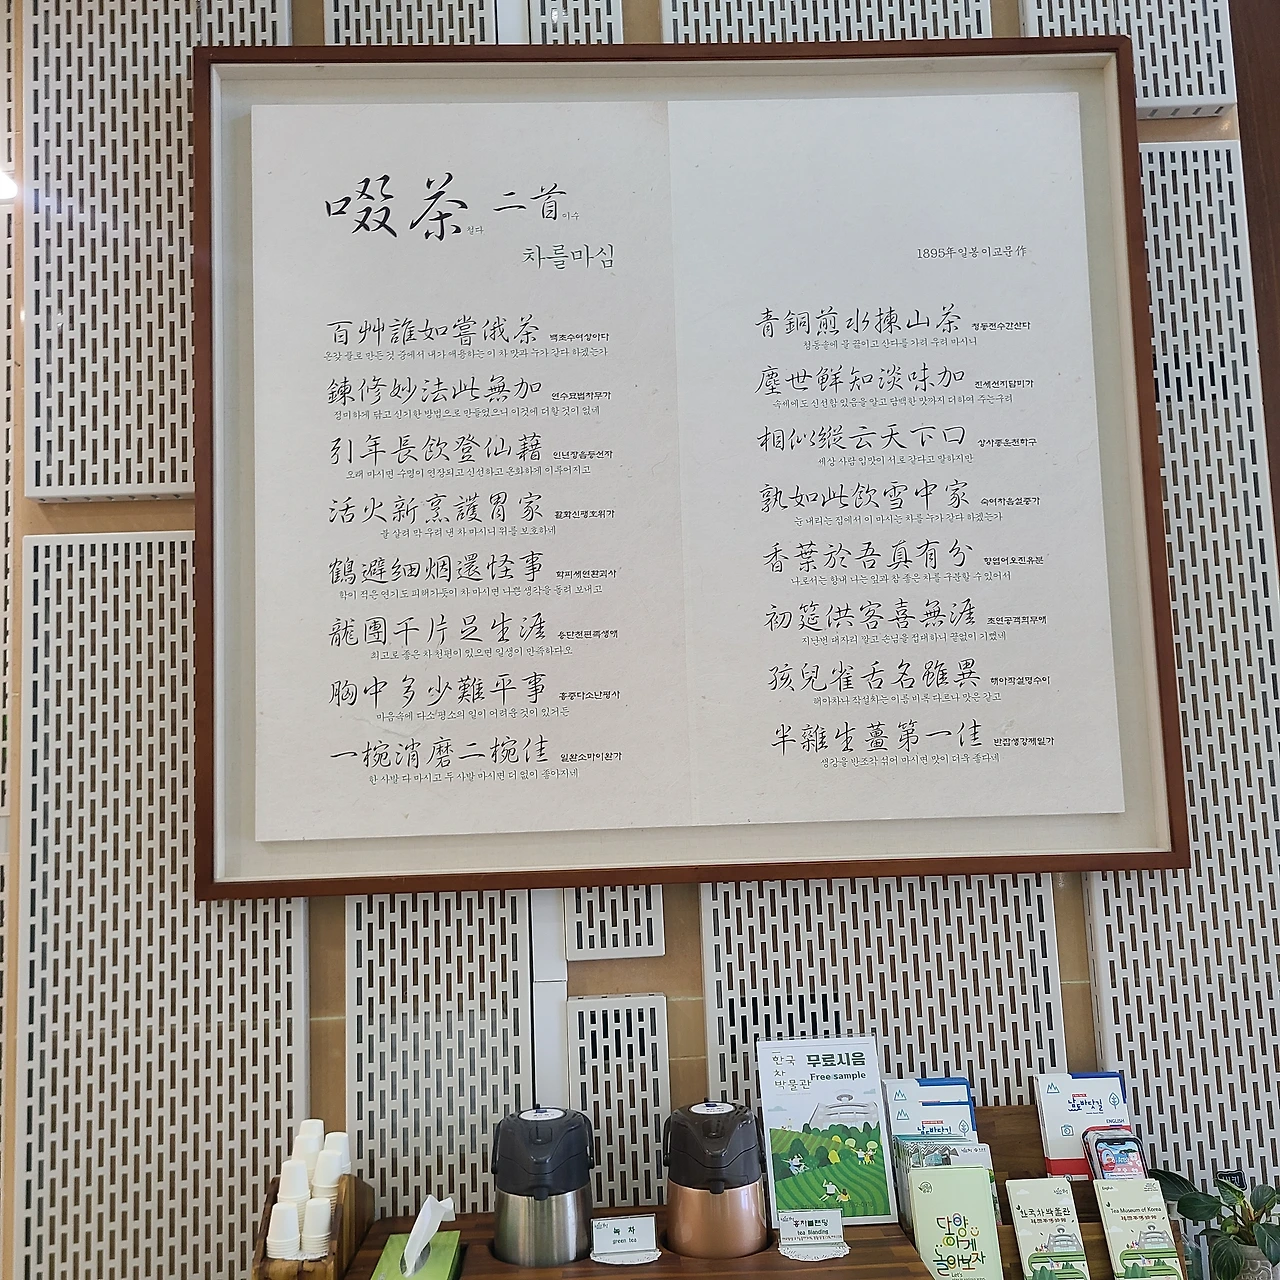 啜茶 철다 二首 이수
차를마심
百艸誰如嘗俄茶 백초수여상아다
온갖 풀로 만든 것 중에서 내가 애용하는 이 차 맛과 누가 같다 하겠는가
鍊修妙法此無加 연수묘법차무가
정미하게 닦고 신기한 방법으로 만들었으니 이것에 더할 것이 없네
引年長飮登仙藉 인년장음등선자
오래 마시면 수명이 연장되고 신선하고 온화하게 이루어지고
活火新烹護胃家 활화신팽호위가
끓 살려 막 우려 낸 차 마시니 위를 보호하네
鶴避細烟還怪事 학피세연환괴사
학이 적은 연기도 피해가듯이 차 마시면 나쁜 생각을 돌려 보내고
龍團千片足生涯 용단천편족생애
최고로 좋은 차 천편이 있으면 일생이 만족하다오
胸中多少難平事 흉중다소난평사
마음속에 다소 평소의 일이 어려운 것이 있거든
一椀消磨二椀佳 일완소마이완가
한 사발 다 마시고 두 사발 마시면 더 없이 좋아지네
1895年 일봉 이교문 作
靑銅煎水揀山茶 청동전수간산다
청동솥에 물 끓이고 산다를 가려 우려 마시니
塵世鮮知淡味加 진세선지담미가
속세에도 신선함 있음을 알고 담백한 맛까지 더하여 주는구려
相似縱云天下口 상사종운천하구
세상 사람 입맛이 서로 같다고 말하지만
孰如此飮雪中家 숙여차음설중가
눈 내리는 집에서 이 마시는 차를 누가 같다 하겠는가
香葉於吾眞有分 향엽어오진유분
나로서는 향내 나는 잎과 참 좋은 차를 구분할 수 있어서
初筵供客喜無涯 초연공객희무애
지난번 대자리 깔고 손님을 접대하니 끝없이 기뻤네
孩兒雀舌名雖異 해아작설명수이
해아차나 작설차는 이름 비록 다르나 맛은 같고
半雜生薑第一佳 반잡생강제일가
생강을 반조각 섞어 마시면 맛이 더욱 좋다네
한국
차
박물관
무료시음
Free sample
녹차
green tea
홍차블렌딩
tea blending
남도바닷길
남도바닷길
ENGLISH
다향하게 놀아보자
Let's
한국차박물관
Tea Museum of Korea